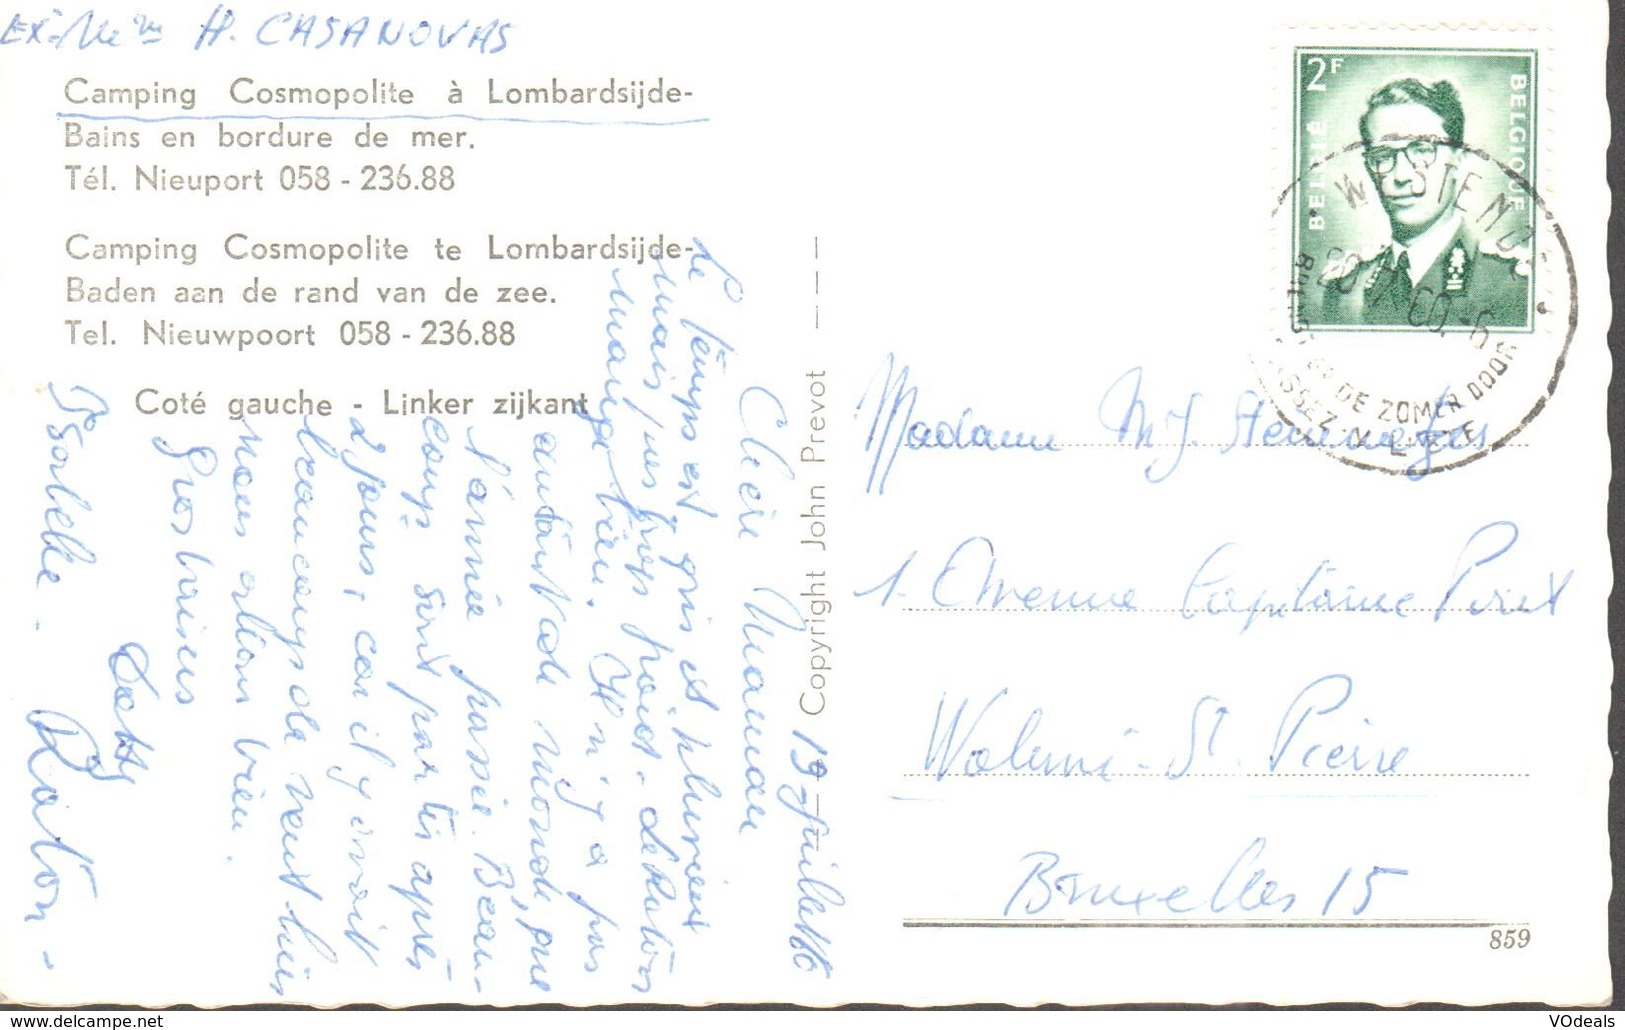 Ex. H. CASANOVAS
Camping Cosmopolite à Lombardsijde-
Bains en bordure de mer.
Tél. Nieuport 058 - 236.88
Camping Cosmopolite te Lombardsijde-
Baden aan de rand van de zee.
Tel. Nieuwpoort 058 - 236.88
Coté gauche - Linker zijkant
Copyright John Prevot
19 juillet
Chère Maman
Le temps est gris et pluvieux
mais pas trop froid. Le Raton
mange bien. Il n'y a pas
autant de monde, que
l'année passée. Beau-
coup sont partis après
2 jours, car il y avait
beaucoup de vent hier
nous allons bien.
Gros baisers
Raton -
Isabelle.
2F
BELGIË
BELGIQUE
WESTENDE
DE ZOMER DOOR
Madame M.J.
1. Avenue Capitaine Piret
Woluwé-St. Pierre
Bruxelles 15
859
VOdeals
https://www.delcampe.net